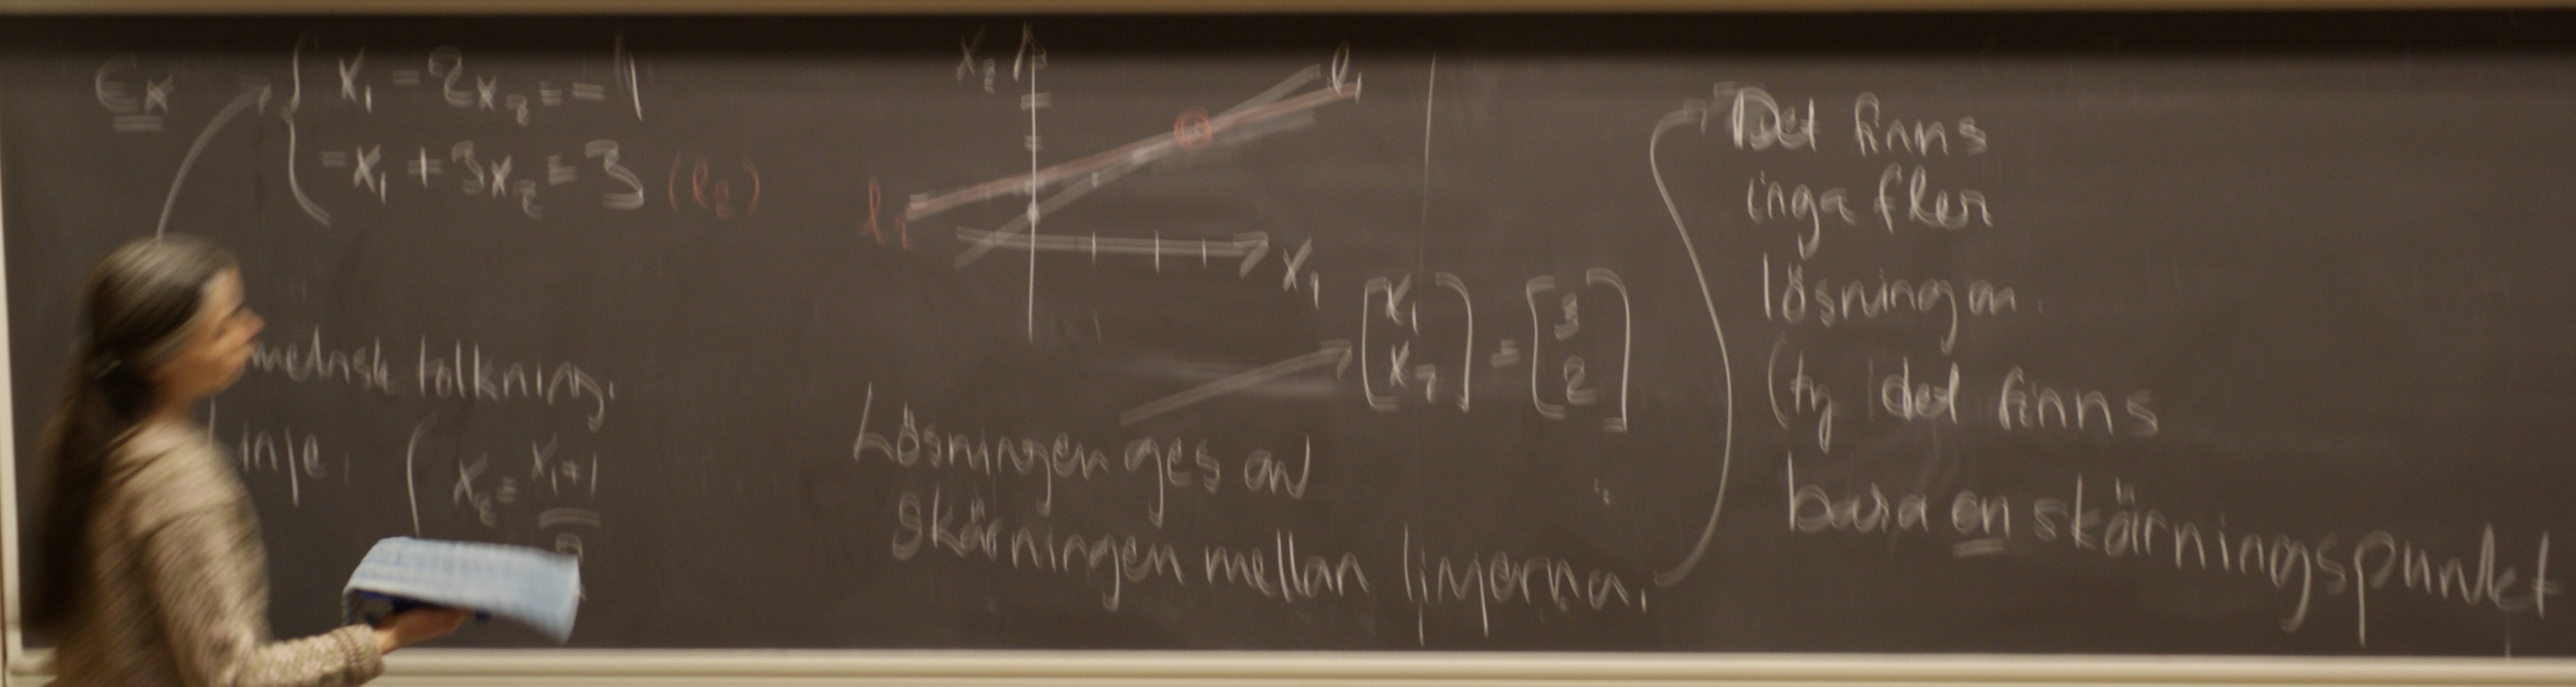 Ex
x₁ - 2x₂ = -1
-x₁ + 3x₂ = 3 (l₂)
metrisk tolkning.
linje.
x₂ = x₁+1
x₂
l₁
x₁
[x₁ x₂] = [3 2]
Lösningen ges av
skärningen mellan linjerna.
Det finns
inga fler
lösningar.
(ty det finns
bara en skärningspunkt